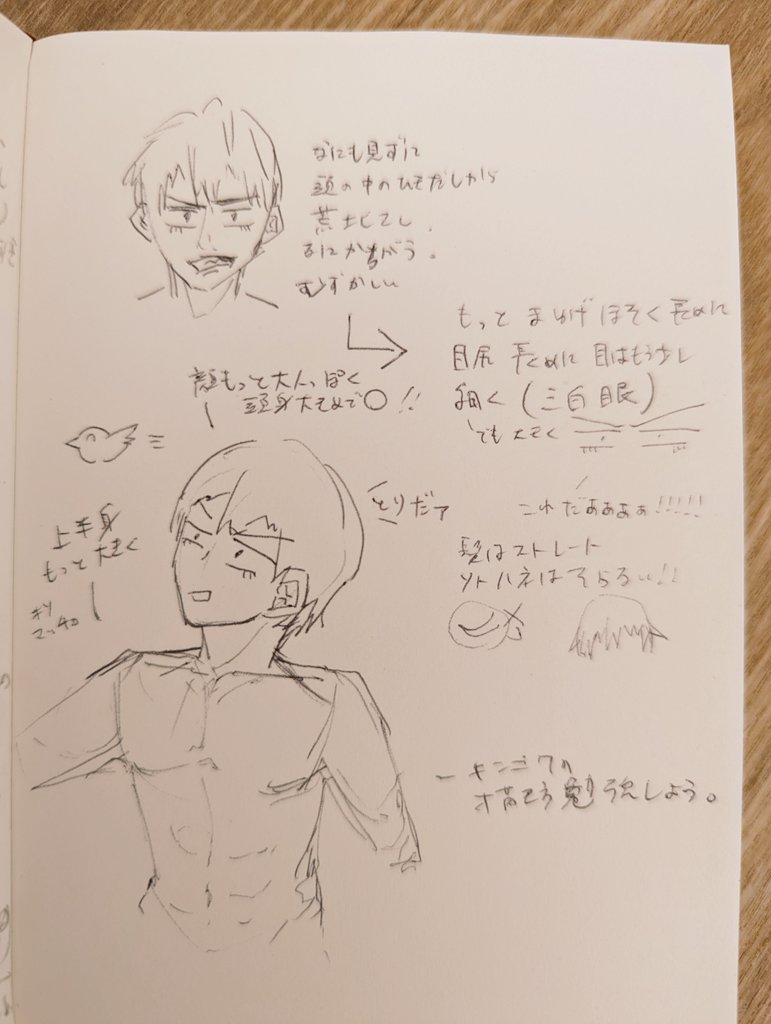 なにも見ずに
頭の中のひきだしから
荒土じてし
なにかちがう。
むずかしい
もっと まゆげ ほそく 長めに
目尻 長めに 目はもう少し
細く (三白眼)
でも 大きく
顔もっと大人っぽく
頭身大きめで〇 !!
とりだァ
これだぁぁぁぁ!!!!!
上半身
もっと大きく
髪はストレート
ソトハネはそらない!!
キンニクの
描き方 勉強しよう。